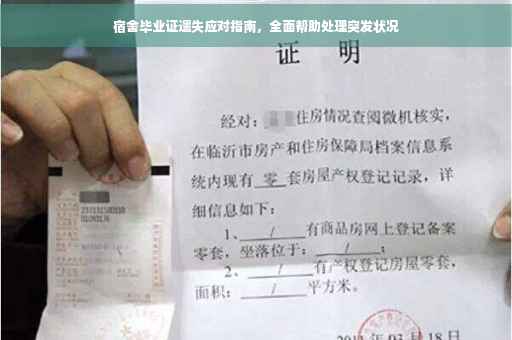 宿舍毕业证遗失应对指南，全面帮助处理突发状况
证 明
经对：住房情况查阅微机核实，
在临沂市房产和住房保障局档案信息系
统内现有 零 套房屋产权登记记录，详
细信息如下：
1、 / 有商品房网上登记备案
零套，坐落位于： / ；
2、 / 有产权登记房屋零套，
面积： / 平方米。
年 03 月 18 日